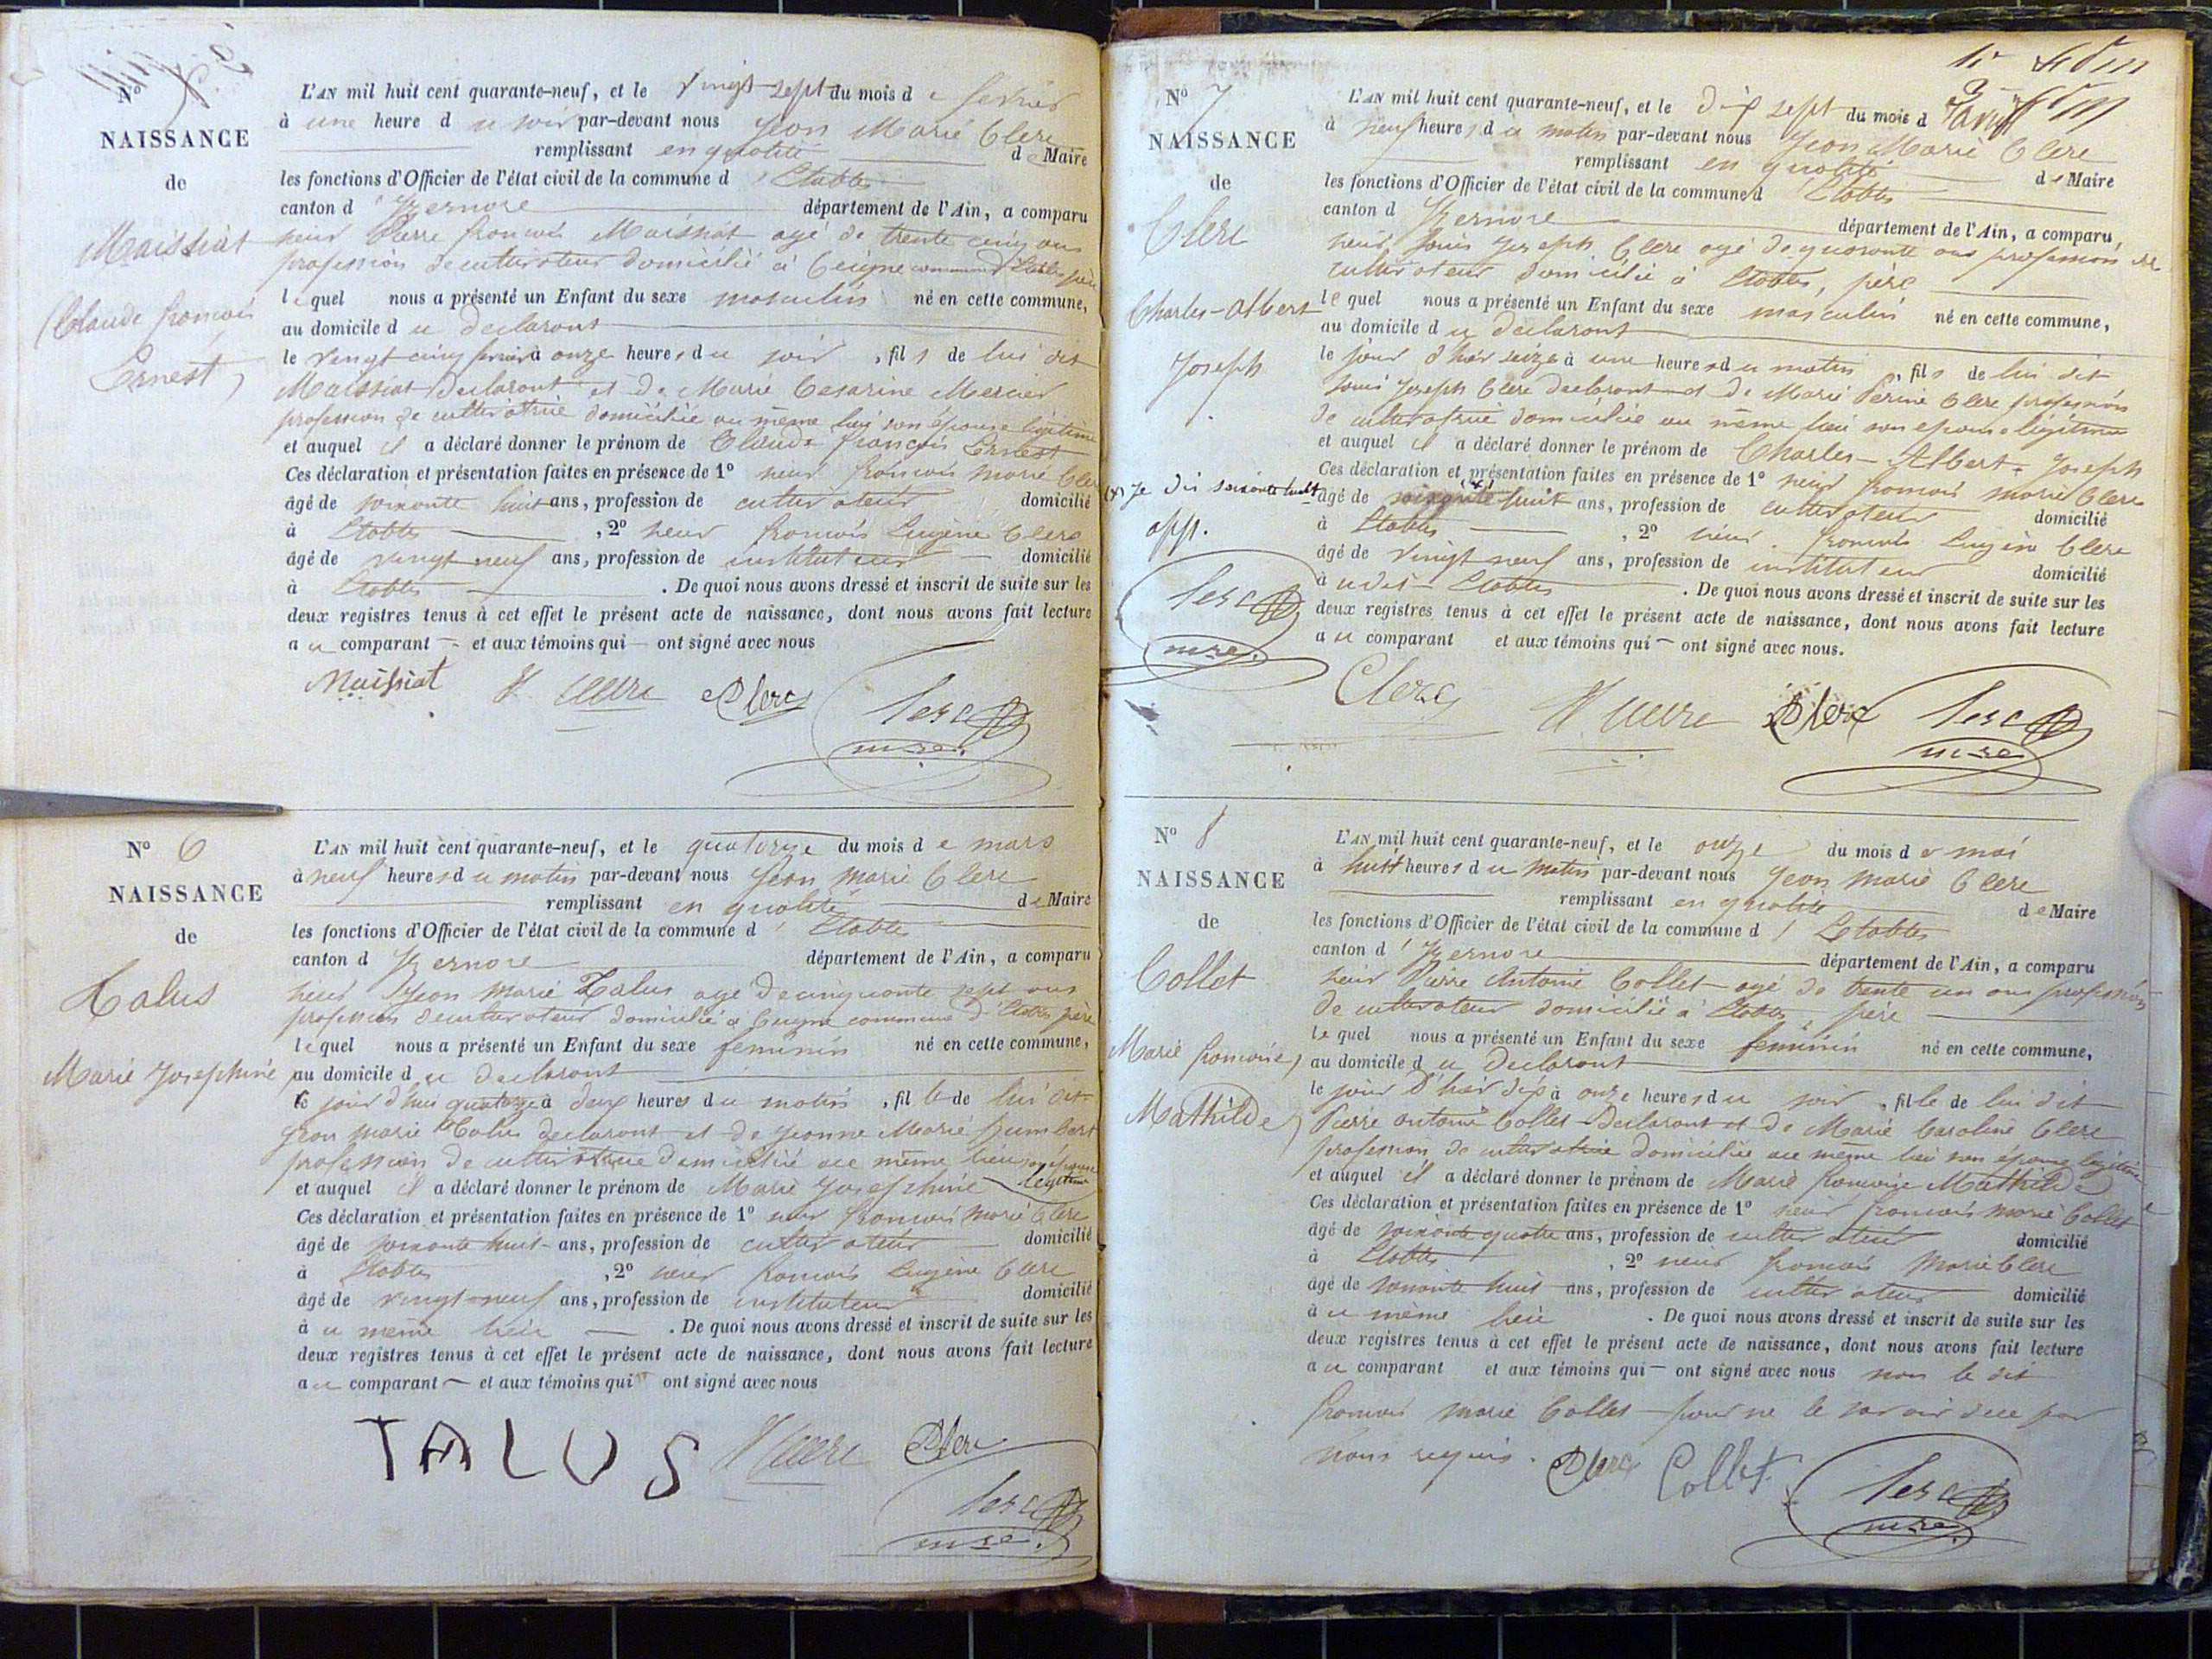 Nº 5
NAISSANCE
de
Maissiat
Claude françois
Ernest
L'AN mil huit cent quarante-neuf, et le vingt-sept du mois de février
à une heure du soir par-devant nous Jean Marie Clerc
remplissant en qualité de Maire
les fonctions d'Officier de l'état civil de la commune d'Etables
canton d'Izernore département de l'Ain, a comparu
sieur Pierre françois Maissiat agé de trente cinq ans
profession de cultivateur domicilié à Ceigne commune d'Etables père
lequel nous a présenté un Enfant du sexe masculin né en cette commune,
au domicile du declarant
le vingt cinq fevrier à onze heures du soir, fils de lui dit
Maissiat declarant et de Marie Cesarine Mercier
profession de cultivatrice domiciliée au même lieu son épouse légitime
et auquel il a déclaré donner le prénom de Claude françois Ernest
Ces déclaration et présentation faites en présence de 1º sieur françois marie Clerc
âgé de soixante huit ans, profession de cultivateur domicilié
à Etables, 2º sieur françois Eugène Clerc
âgé de vingt neuf ans, profession de instituteur domicilié
à Etables. De quoi nous avons dressé et inscrit de suite sur les
deux registres tenus à cet effet le présent acte de naissance, dont nous avons fait lecture
au comparant et aux témoins qui ont signé avec nous
Maissiat Clerc Clerc
mre.
Nº 6
NAISSANCE
de
Talus
Marie Josephine
L'AN mil huit cent quarante-neuf, et le quatorze du mois de mars
à neuf heures du matin par-devant nous Jean Marie Clerc
remplissant en qualité de Maire
les fonctions d'Officier de l'état civil de la commune d'Etables
canton d'Izernore département de l'Ain, a comparu
sieur Jean Marie Talus agé de cinquante sept ans
profession de cultivateur domicilié à Ceigne commune d'Etables père
lequel nous a présenté un Enfant du sexe féminin né en cette commune,
au domicile du declarant
le jour d'hui quatorze à deux heures du matin, fille de lui dit
Jean Marie Talus declarant et de Jeanne Marie Humbert
profession de cultivatrice domiciliée au même lieu son épouse
légitime
et auquel il a déclaré donner le prénom de Marie Josephine
Ces déclaration et présentation faites en présence de 1º sieur françois Marie Clerc
âgé de soixante huit ans, profession de cultivateur domicilié
à Etables, 2º sieur françois Eugène Clerc
âgé de vingt-neuf ans, profession de instituteur domicilié
au même lieu. De quoi nous avons dressé et inscrit de suite sur les
deux registres tenus à cet effet le présent acte de naissance, dont nous avons fait lecture
au comparant et aux témoins qui ont signé avec nous
TALUS Clerc Clerc
mre.
Nº 7
NAISSANCE
de
Clerc
Charles-Albert
Joseph
(x) Je dis soixante huit
app.
mre.
L'AN mil huit cent quarante-neuf, et le dix sept du mois d'avril
à neuf heures du matin par-devant nous Jean Marie Clerc
remplissant en qualité de Maire
les fonctions d'Officier de l'état civil de la commune d'Etables
canton d'Izernore département de l'Ain, a comparu,
sieur Louis Joseph Clerc agé de quarante ans profession de
cultivateur domicilié à Etables, père
lequel nous a présenté un Enfant du sexe masculin né en cette commune,
au domicile du declarant
le jour d'hier seize à une heures du matin, fils de lui dit
Louis Joseph Clerc declarant et de Marie Perine Clerc profession
de cultivatrice domiciliée au même lieu son épouse légitime
et auquel il a déclaré donner le prénom de Charles-Albert-Joseph
Ces déclaration et présentation faites en présence de 1º sieur françois marie Clerc
âgé de soixante huit (x) ans, profession de cultivateur domicilié
à Etables, 2º sieur françois Eugène Clerc
âgé de vingt neuf ans, profession de instituteur domicilié
à udit Etables. De quoi nous avons dressé et inscrit de suite sur les
deux registres tenus à cet effet le présent acte de naissance, dont nous avons fait lecture
au comparant et aux témoins qui ont signé avec nous.
Clerc Clerc Clerc
mre
Nº 8
NAISSANCE
de
Collet
Marie françoise
Mathilde
L'AN mil huit cent quarante-neuf, et le onze du mois de mai
à huit heures du matin par-devant nous Jean Marie Clerc
remplissant en qualité de Maire
les fonctions d'Officier de l'état civil de la commune d'Etables
canton d'Izernore département de l'Ain, a comparu
sieur Pierre Antoine Collet agé de trente un ans profession
de cultivateur domicilié à Etables, père
lequel nous a présenté un Enfant du sexe féminin né en cette commune,
au domicile du Declarant
le jour d'hier dix à onze heures du soir, fille de lui dit
Pierre antoine Collet Declarant et de Marie Caroline Clerc
profession de cultivatrice domiciliée au même lieu son épouse légitime
et auquel il a déclaré donner le prénom de Marie françoise Mathilde
Ces déclaration et présentation faites en présence de 1º sieur françois marie Collet
âgé de soixante quatre ans, profession de cultivateur domicilié
à Etables, 2º sieur françois Marie Clerc
âgé de soixante huit ans, profession de cultivateur domicilié
au même lieu. De quoi nous avons dressé et inscrit de suite sur les
deux registres tenus à cet effet le présent acte de naissance, dont nous avons fait lecture
au comparant et aux témoins qui ont signé avec nous non le dit
françois marie Collet pour ne le savoir de ce par
nous requis. Clerc Collet
mre